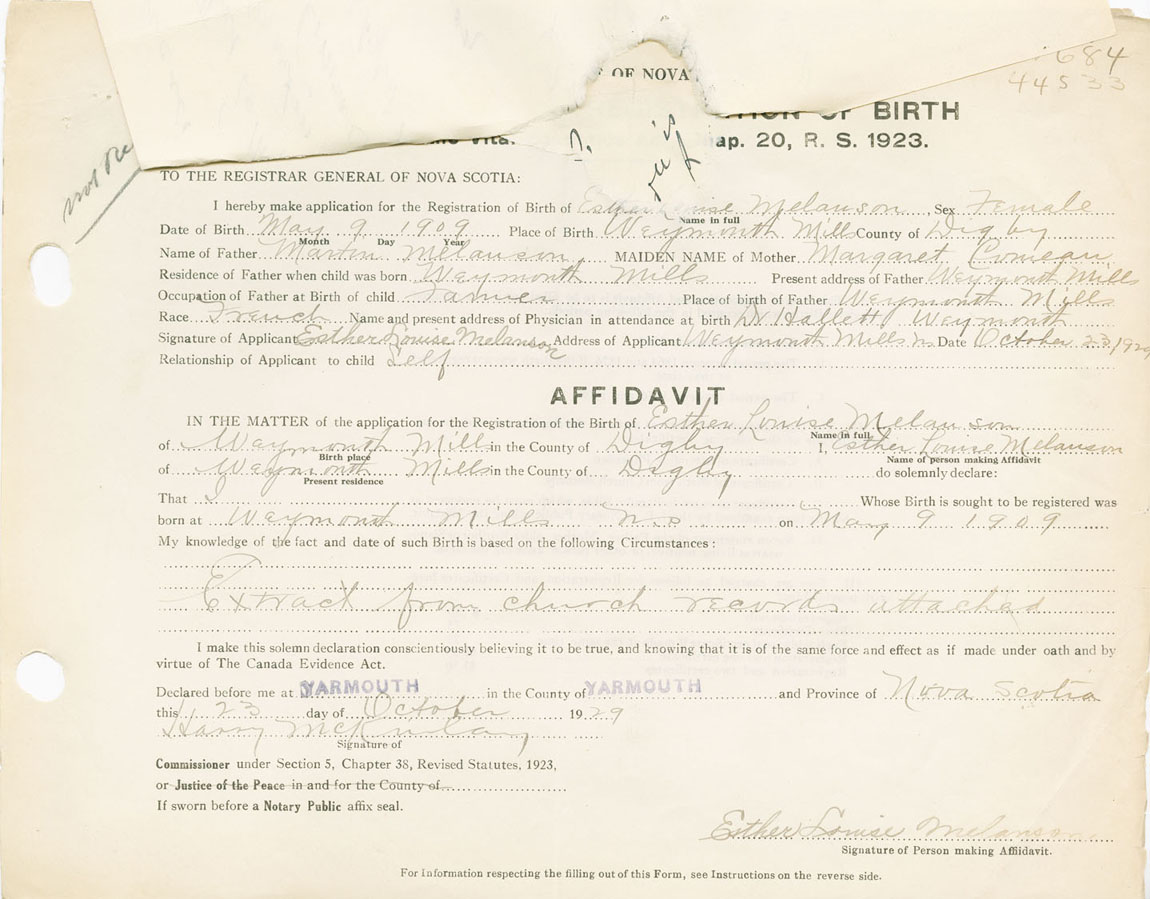 684
44533
OF NOVA
OF BIRTH
ap. 20, R. S. 1923.
TO THE REGISTRAR GENERAL OF NOVA SCOTIA:
I hereby make application for the Registration of Birth of Esther Louise Melanson Sex Female
Name in full
Date of Birth May 9 1909 Place of Birth Weymouth Mills County of Digby
Month Day Year
Name of Father Martin Melanson MAIDEN NAME of Mother Margaret Comeau
Residence of Father when child was born Weymouth Mills Present address of Father Weymouth Mills
Occupation of Father at Birth of child Farmer Place of birth of Father Weymouth Mills
Race French Name and present address of Physician in attendance at birth Dr Hallett Weymouth
Signature of Applicant Esther Louise Melanson Address of Applicant Weymouth Mills Date October 23, 1929
Relationship of Applicant to child Self
AFFIDAVIT
IN THE MATTER of the application for the Registration of the Birth of Esther Louise Melanson
Name in full
of Weymouth Mills in the County of Digby I, Esther Louise Melanson
Birth place Name of person making Affidavit
of Weymouth Mills in the County of Digby do solemnly declare:
Present residence
That I Whose Birth is sought to be registered was
born at Weymouth Mills N.S on May 9 1909
My knowledge of the fact and date of such Birth is based on the following Circumstances :
Extract from church records attached
I make this solemn declaration conscientiously believing it to be true, and knowing that it is of the same force and effect as if made under oath and by
virtue of The Canada Evidence Act.
Declared before me at YARMOUTH in the County of YARMOUTH and Province of Nova Scotia
this 23 day of October 1929
Harry
Signature of
Commissioner under Section 5, Chapter 38, Revised Statutes, 1923,
or Justice of the Peace in and for the County of
If sworn before a Notary Public affix seal.
Esther Louise Melanson
Signature of Person making Affidavit.
For Information respecting the filling out of this Form, see Instructions on the reverse side.